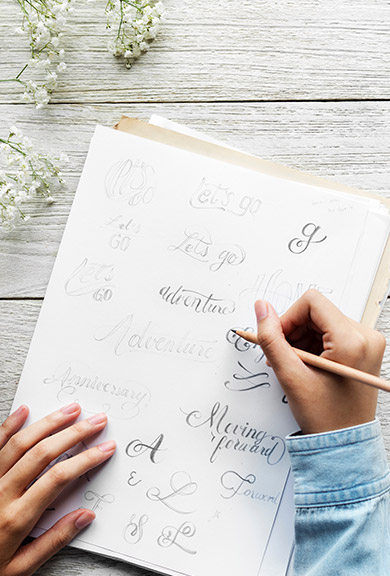 Let's go
Let's go
LET'S
GO
Let's go
g
Let's
GO
adventure
HOME
Adventure
Anniversary
Moving
forward
A
E L
Forward
F
S L